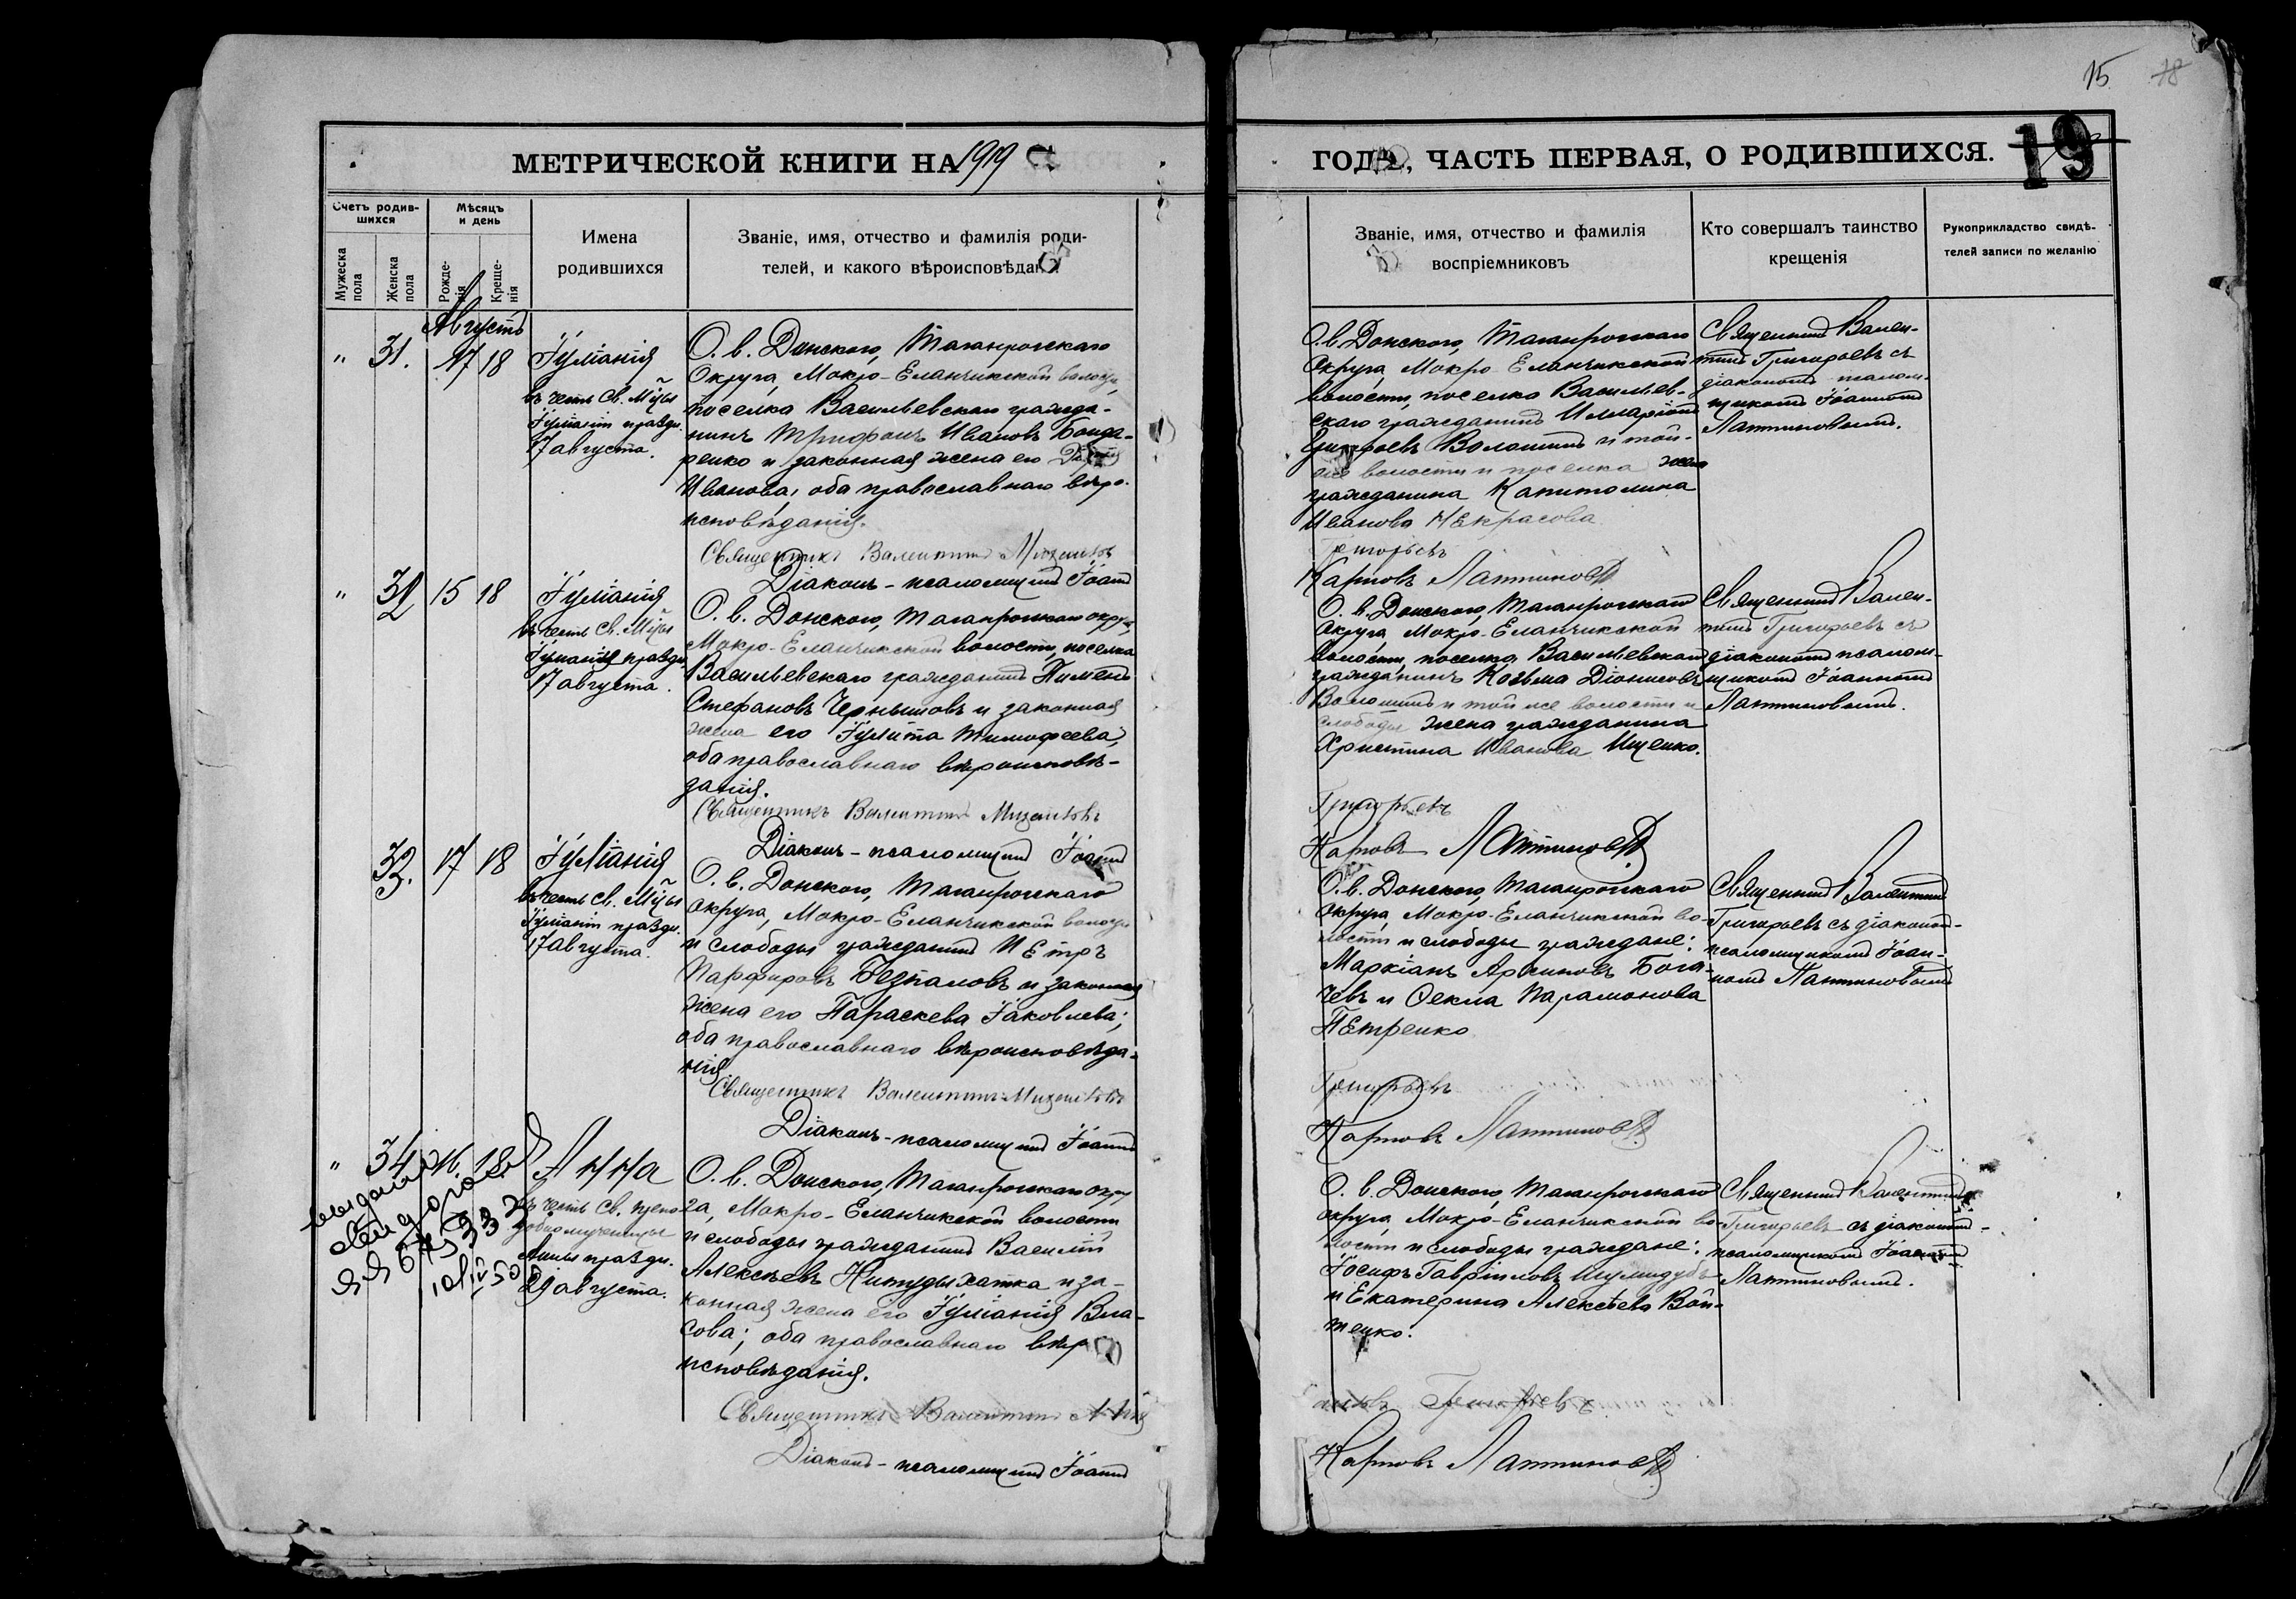 15 18
МЕТРИЧЕСКОЙ КНИГИ НА 1919
ГОДЪ, ЧАСТЬ ПЕРВАЯ, О РОДИВШИХСЯ.
19
Счетъ родив-
шихся
Мѣсяцъ
и день
Мужеска
пола
Женска
пола
Рожде-
нія
Креще-
нія
Имена
родившихся
Званіе, имя, отчество и фамилія роди-
телей, и какого вѣроисповѣдан
Званіе, имя, отчество и фамилія
воспріемниковъ
Кто совершалъ таинство
крещенія
Рукоприкладство свидѣ-
телей записи по желанію
Августъ
" 31. 17 18
Іуліанія
въ честь Св. М̃цы
Іуліаніи праздн.
17 августа.
О. в. Донского, Таганрогскаго
Округа, Мокро-Еланчикской
поселка Васильевскаго гражда-
нинъ Трифонъ Ивановъ Бонда-
ренко и законная жена его
Иванова, оба православнаго вѣро-
исповѣданія.
Священникъ Валентинъ
Діаконъ-псаломщикъ Іоаннъ
О. в. Донского, Таганрогскаго
Округа, Мокро-Еланчикской
волости, поселка Васильев-
скаго гражданинъ Илларіонъ
Волошинъ и той-
же волости и поселка жена
гражданина Капитолина
Иванова Некрасова
Григорьевъ
Карповъ Лаптиновъ
Священникъ Вален-
тинъ Григорьевъ съ
діакономъ псалом-
щикомъ Іоанномъ
Лаптиновымъ.
" 32 15 18
Іуліанія
въ честь Св. М̃цы
Іуліаніи праздн.
17 августа.
О. в. Донского, Таганрогскаго окру-
Мокро-Еланчикской волости, поселка
Васильевскаго гражданинъ Пименъ
Стефановъ Чернышовъ и законная
жена его Іулитта Тимофеева,
оба православнаго вѣроисповѣ-
данія.
Священникъ Валентинъ
Діаконъ-псаломщикъ Іоаннъ
О. в. Донского, Таганрогскаго
Округа, Мокро-Еланчикской
волости, поселка Васильевскаго
гражданинъ Козьма Діонисовъ
Волошинъ и той же волости и
слободы жена гражданина
Христина Иванова Ищенко.
Григорьевъ
Карповъ Лаптиновъ
Священникъ Вален-
тинъ Григорьевъ съ
діакономъ псалом-
щикомъ Іоанномъ
Лаптиновымъ.
33. 17 18
Іуліанія
въ честь Св. М̃цы
Іуліаніи праздн.
17 августа.
О. в. Донского, Таганрогскаго
Округа, Мокро-Еланчикской
и слободы гражданинъ Петръ
Парфировъ Безпаловъ и законная
жена его Параскева Іаковлева;
оба православнаго вѣроисповѣда-
нія.
Священникъ Валентинъ
Діаконъ-псаломщикъ Іоаннъ
О. в. Донского, Таганрогскаго
Округа, Мокро-Еланчикской во-
лости и слободы граждане:
Маркіанъ Арсиновъ Бога-
чевъ и Ѳекла Парамонова
Петренко
Григорьевъ
Карповъ Лаптиновъ
Священникъ Валентинъ
Григорьевъ съ діакономъ-
псаломщикомъ Іоан-
номъ Лаптиновымъ
" 34 16. 18
Анна
въ честь Св. препо-
добномученицы
Анны праздн.
29 августа.
О. в. Донского, Таганрогскаго окру-
га, Мокро-Еланчикской волости
и слободы гражданинъ Василій
Алексѣевъ Нитудыхатка и за-
конная жена его Іуліанія Вла-
сова; оба православнаго вѣр
исповѣданія.
Священникъ Валентинъ
Діаконъ-псаломщикъ Іоаннъ
О. в. Донского, Таганрогскаго
округа, Мокро-Еланчикской во-
лости и слободы граждане:
Іосифъ Гавріиловъ Шумидубъ
и Екатерина Алексѣева Вой-
тенко.
Григорьевъ
Карповъ Лаптиновъ
Священникъ Валентинъ
Григорьевъ съ діакономъ-
псаломщикомъ Іоанномъ
Лаптиновымъ.